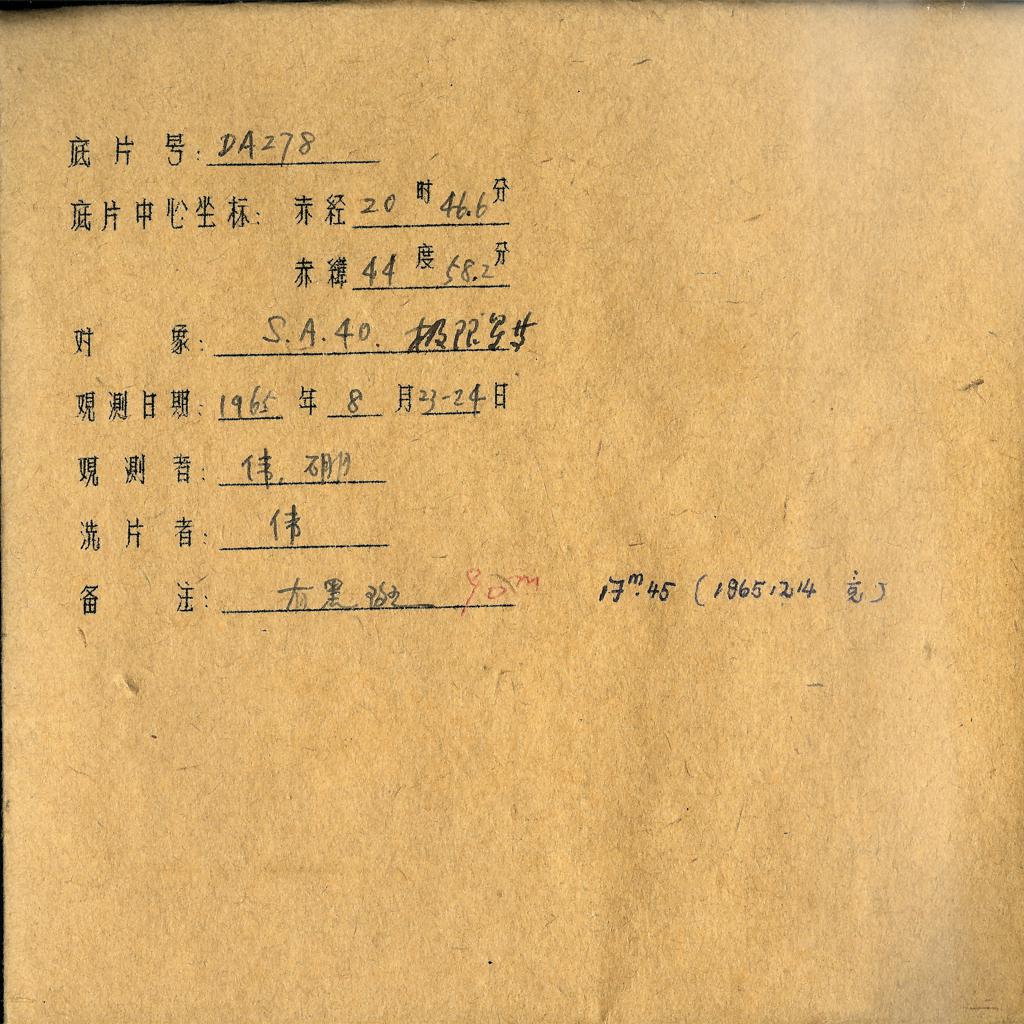 底片号: DA278
底片中心坐标: 赤经 20 时 46.6 分
赤纬 44 度 58.2 分
对象: S.A.40. 极限星等
观测日期: 1965 年 8 月 23-24 日
观测者: 伟, 硼
洗片者: 伟
备注: 有黑斑 90m 17m.45 (1965.12.14 亮)